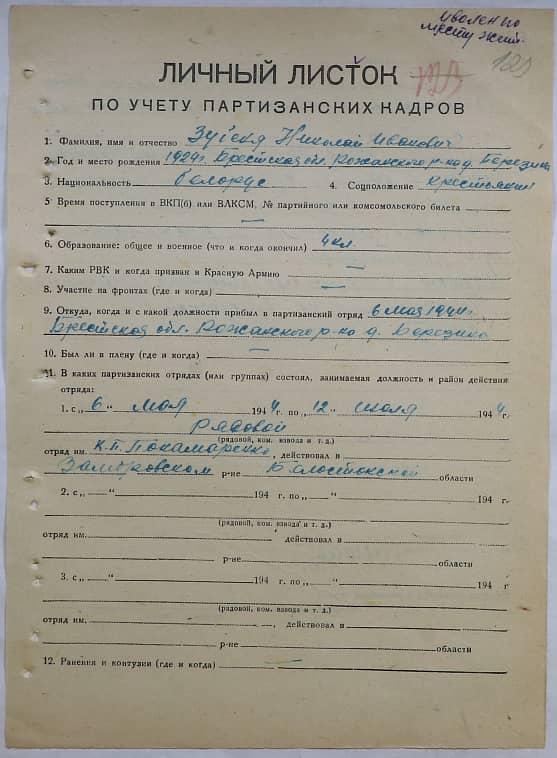 уволен по
месту жит.
120
ЛИЧНЫЙ ЛИСТОК
ПО УЧЕТУ ПАРТИЗАНСКИХ КАДРОВ
1. Фамилия, имя и отчество Николай Иванович
2. Год и место рождения 1924г. Брестская обл. Рожанского р-на д. Березина
3. Национальность белорус 4. Соцположение крестьянин
5 Время поступления в ВКП(б) или ВЛКСМ, № партийного или комсомольского билета
—
6. Образование: общее и военное (что и когда окончил) 4 кл.
7. Каким РВК и когда призван в Красную Армию —
8. Участие на фронтах (где и когда) —
9. Откуда, когда и с какой должности прибыл в партизанский отряд 6 мая 1944г.
Брестская обл. Рожанского р-на д. Березина
10. Был ли в плену (где и когда) —
11. В каких партизанских отрядах (или группах) состоял, занимаемая должность и район действия
отряда:
1. с „6“ мая 1944 г. по „12“ июля 1944 г.
Рядовой
(рядовой, ком. взвода и т. д.)
отряд им. К.П. Покамаренко, действовал в
Замбровском р-не Белостокской области
2. с „ “ 194 г. по „ “ 194 г.
(рядовой, ком. взвода и т. д.)
отряд им. действовал в
р-не области
3. с „ “ 194 г. по „ “ 194 г
(рядовой, ком. взвода и т. д.)
отряд им. , действовал в
р-не области
12. Ранения и контузии (где и когда) —